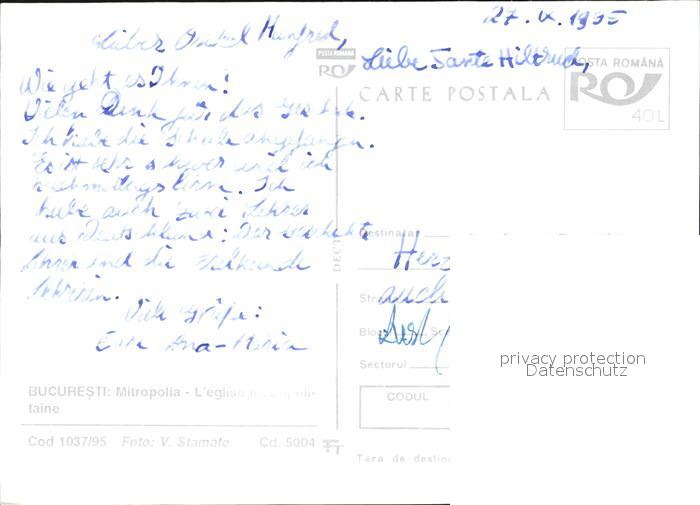 27. IX. 1995
Lieber Onkel Manfred,
Liebe Tante Hiltrud,
Wie geht es Ihnen?
Vielen Dank für das Geschenk.
Ich habe die Schule angefangen.
Es ist sehr schwer weil ich
nachmittags lerne. Ich
habe auch zwei Lehrer
aus Deutschland: Der Geschichte
Lehrer und die Erdkunde
Lehrerin.
Viele Grüße:
Eure Ana-Maria
Herz
auch
POSTA ROMÂNA
POSTA ROMÂNĂ
CARTE POSTALA
40 L
Destinatar
Str
Bloc Sc
Sectorul
CODUL
Tara de destin
BUCUREȘTI: Mitropolia - L'église métropoli-
taine
Cod 1037/95 Foto: V. Stamate Cd. 5004
privacy protection
Datenschutz